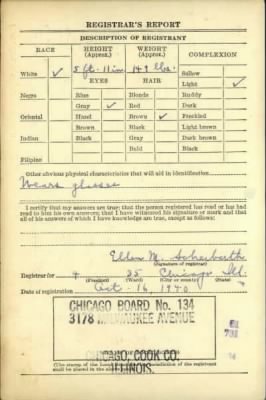 REGISTRAR'S REPORT
DESCRIPTION OF REGISTRANT
RACE HEIGHT (Approx.) WEIGHT (Approx.) COMPLEXION
White ✓ 5 ft. 11 in. 149 lbs. Sallow
EYES HAIR Light ✓
Negro Blue Blonde Ruddy
Gray ✓ Red Dark
Oriental Hazel Brown ✓ Freckled
Brown Black Light brown
Indian Black Gray Dark brown
Bald Black
Filipino
Other obvious physical characteristics that will aid in identification
Wears glasses
I certify that my answers are true; that the person registered has read or has had
read to him his own answers; that I have witnessed his signature or mark and that
all of his answers of which I have knowledge are true, except as follows:
Ellen M.
(Signature of registrar)
Registrar for 4 35 Chicago Ill.
(Precinct) (Ward) (City or county) (State)
Date of registration Oct. 16, 1940
CHICAGO BOARD No. 134
3178 MILWAUKEE AVENUE
CHICAGO, COOK CO.
ILLINOIS.